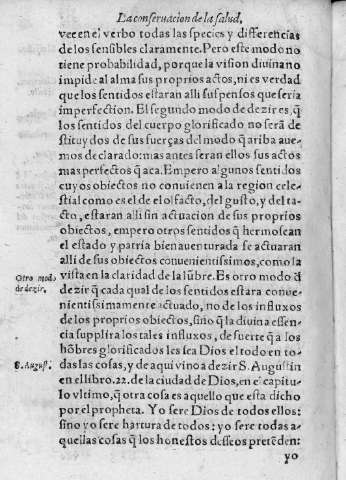 La conseruacion de la salud,
vee en el verbo todas las species y differencias
de los sensibles claramente. Pero este modo no
tiene probabilidad, porque la vision diuina no
impide al alma sus proprios actos, ni es verdad
que los sentidos estaran alli suspensos que seria
imperfection. El segundo modo de dezir es, q̃
los sentidos del cuerpo glorificado no serã de
stituydos de sus fuerças del modo q̃ ariba aue-
mos declarado: mas antes seran ellos sus actos
mas perfectos q̃ aca. Empero algunos sentidos
cuyos obiectos no conuienen a la region cele-
stial como es el de el olfacto, del gusto, y del ta-
cto, estaran alli sin actuacion de sus proprios
obiectos, empero otros sentidos q̃ hermosean
el estado y patria bienauenturada se actuaran
alli de sus obiectos conuenientissimos, como la
vista en la claridad de la lũbre. Es otro modo d̃
Otro modo
de dezir.
dezir q̃ cada qual de los sentidos estara conue-
nientissimamente actuado, no de los influxos
de los proprios obiectos, sino q̃ la diuina essen-
cia supplira los tales influxos, de suerte q̃ a los
hõbres glorificados les sea Dios el todo en to-
S. August.
das las cosas, y de aqui vino a dezir S. Augustin
en el libro. 22. de la ciudad de Dios, en el capitu-
lo vltimo, q̃ otra cosa es aquello que esta dicho
por el propheta. Yo sere Dios de todos ellos:
sino yo sere hartura de todos: yo sere todas a-
quellas cosas q̃ los honestos desseos pretẽden:
yo